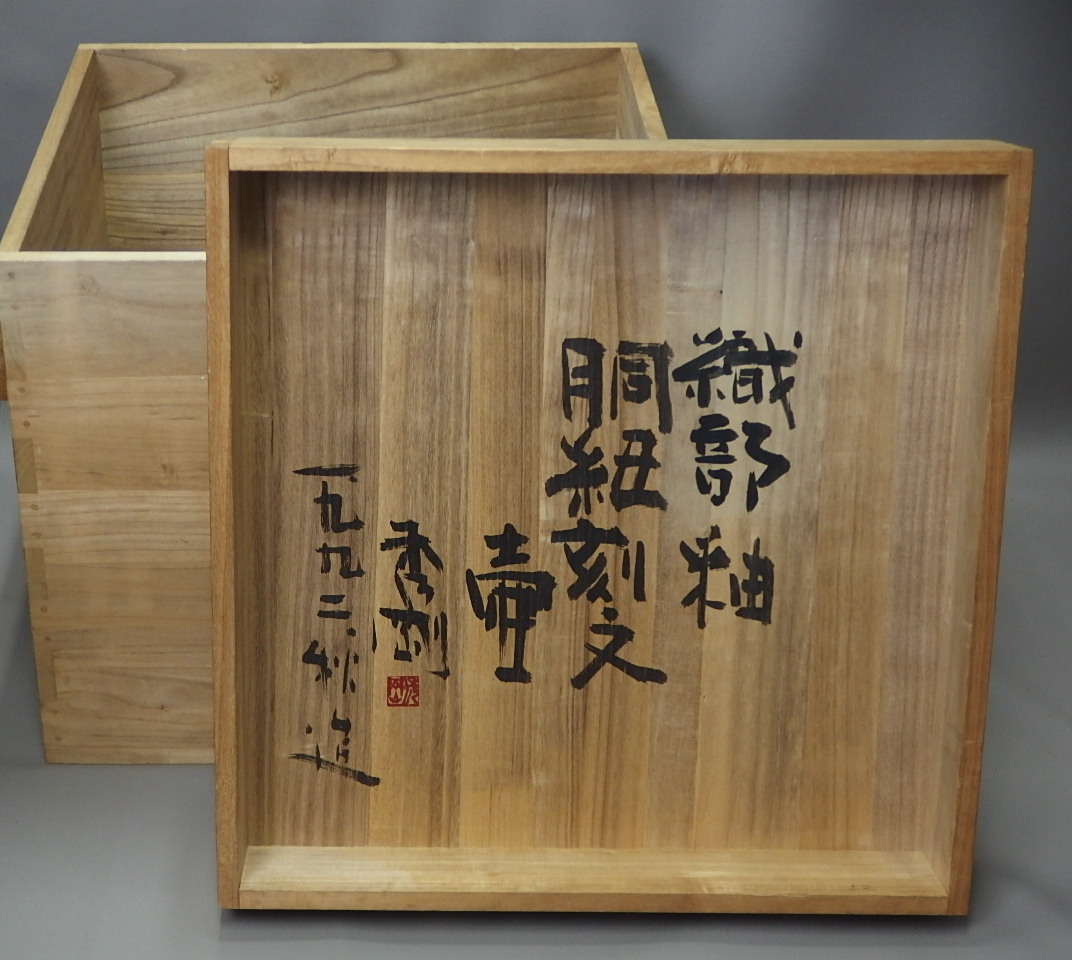 織部釉
胴紐刻文
壷
秀剛
一九九二、秋 造